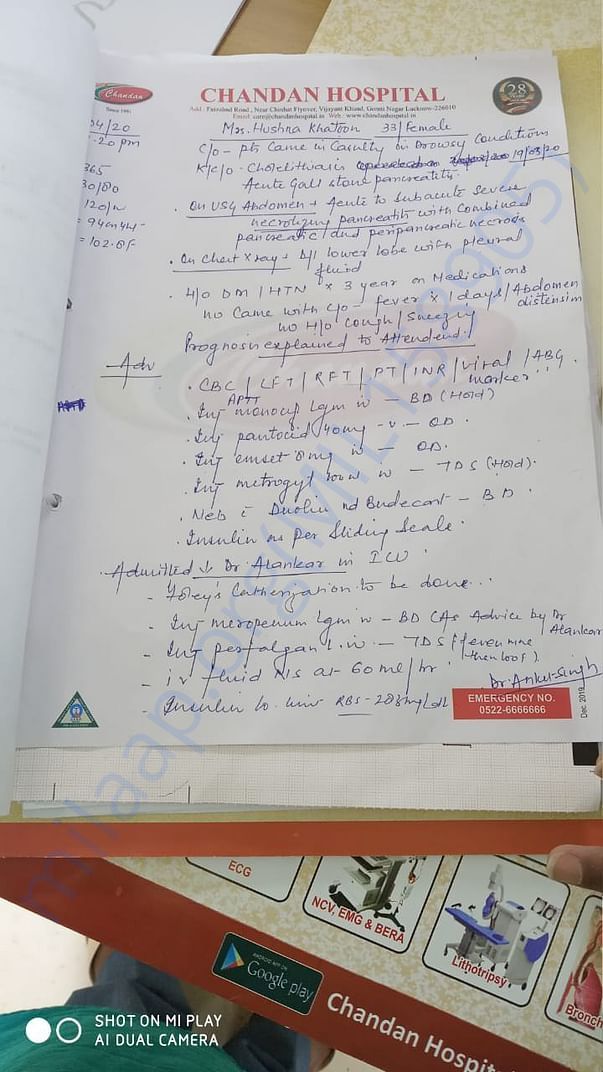 Chandan
Since 1991
28
CHANDAN HOSPITAL
Add : Faizabad Road , Near Chinhat Flyover, Vijayant Khand, Gomti Nagar Lucknow-226010
Email care@chandanhospital.in Web : www.chandanhospital.in
04/20
.20 pm
365
30/80
120/m
= 102.8F
Mrs. Hushna Khatoon 33/Female
C/o - pts Came in Casulty in Drowsy Conditions
K/C/O - Cholelithiasis 19/03/20
Acute Gall stone pancreatitis.
. On USG Abdomen + Acute to Subacute Severe
necrotizing pancreatitis with Combined
pancreatic and peripancreatic necrosis
. On Chest X ray + lower lobe with pleural
fluid
. H/O DM / HTN x 3 year on Medications
no Came with C/o - fever x 1 days / Abdomen
distension
no H/o Cough / Sneezing
Prognosis explained to Attendend.
Adv
. CBC / LFT / RFT / PT / INR / Viral marker / ABG
APTT
. Inj monocef 1gm iv - BD (Hold)
. Inj pantocid 40mg iv - OD.
. Inj emset 8mg iv - OD.
. Inj metrogyl 100ml iv - TDS (Hold).
. Neb c Duolin nd Budecort - BD.
. Insulin as per Sliding Scale.
. Admitted ↓ Dr Alankar in ICU.
- Foley's Catherization to be done...
- Inj meropenum 1gm iv - BD (As Advice by Dr Alankar
- Inj perfalgan 1 iv - TDS (
- iv fluid N/S at 60 ml/hr.
- Insulin RBS - 283mg/dl
Dr. Ankur Singh
EMERGENCY NO.
0522-6666666
Dec. 2019
milaap.org
ECG
NCV, EMG & BERA
Lithotripsy
Bronch
ANDROID APP ON
Google play
Chandan Hospit
SHOT ON MI PLAY
AI DUAL CAMERA